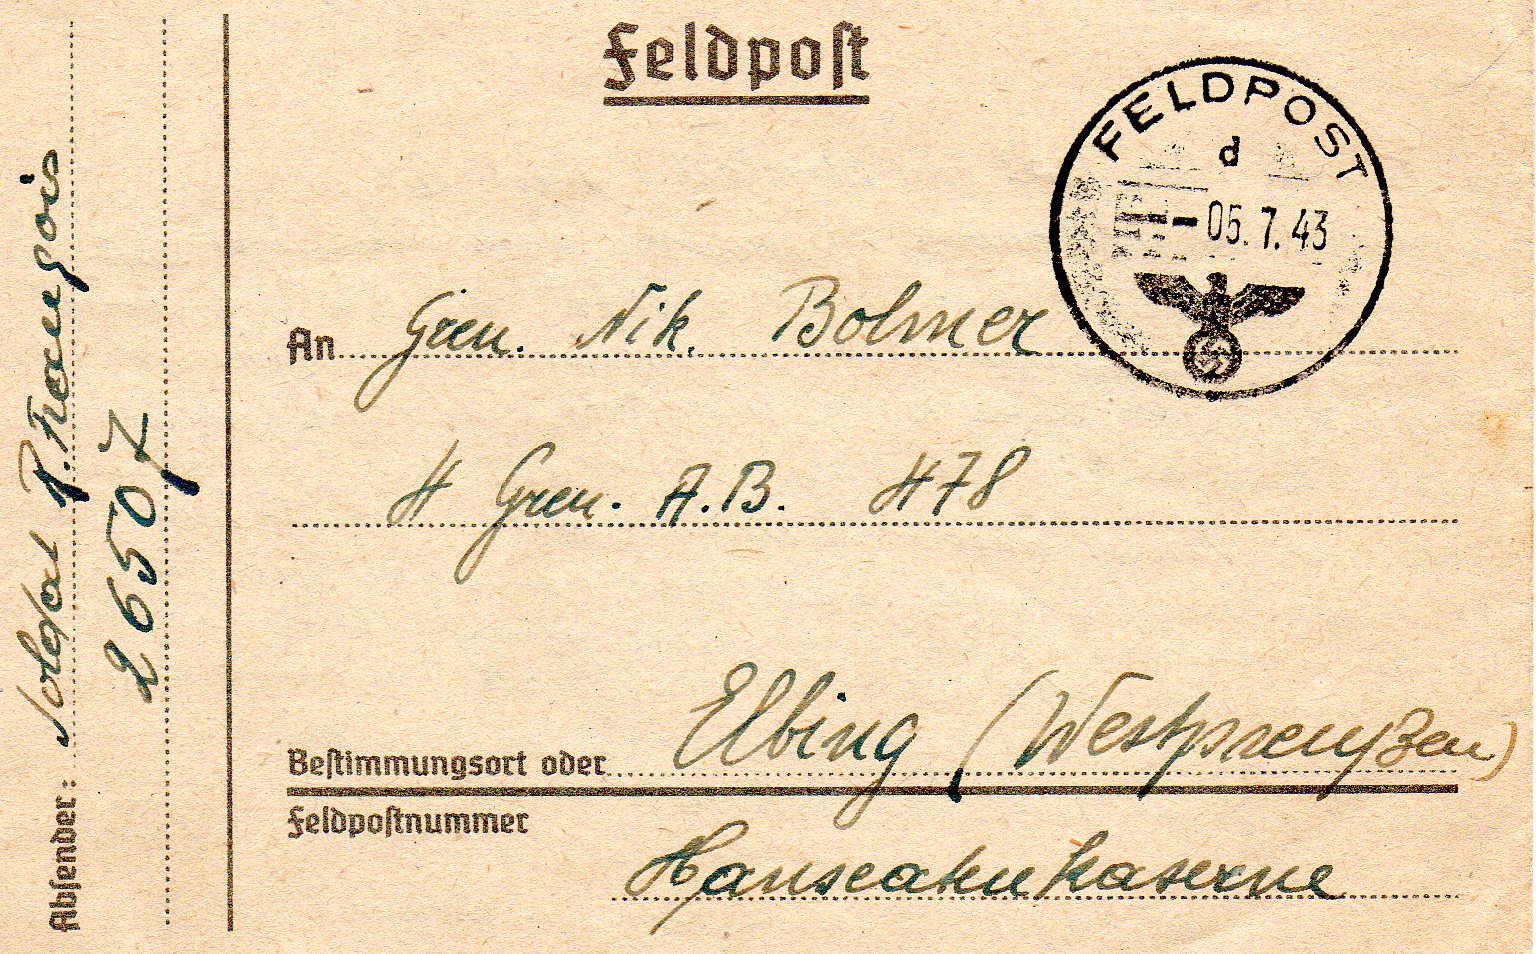 Feldpost
FELDPOST
d
- 05.7.43
An Gren. Nik. Bolmer
4 Gren. A.B. 478
Elbing (Westpreußen)
Bestimmungsort oder
Feldpostnummer
Hanseatenkaserne
Absender: Soldat P. François
26507